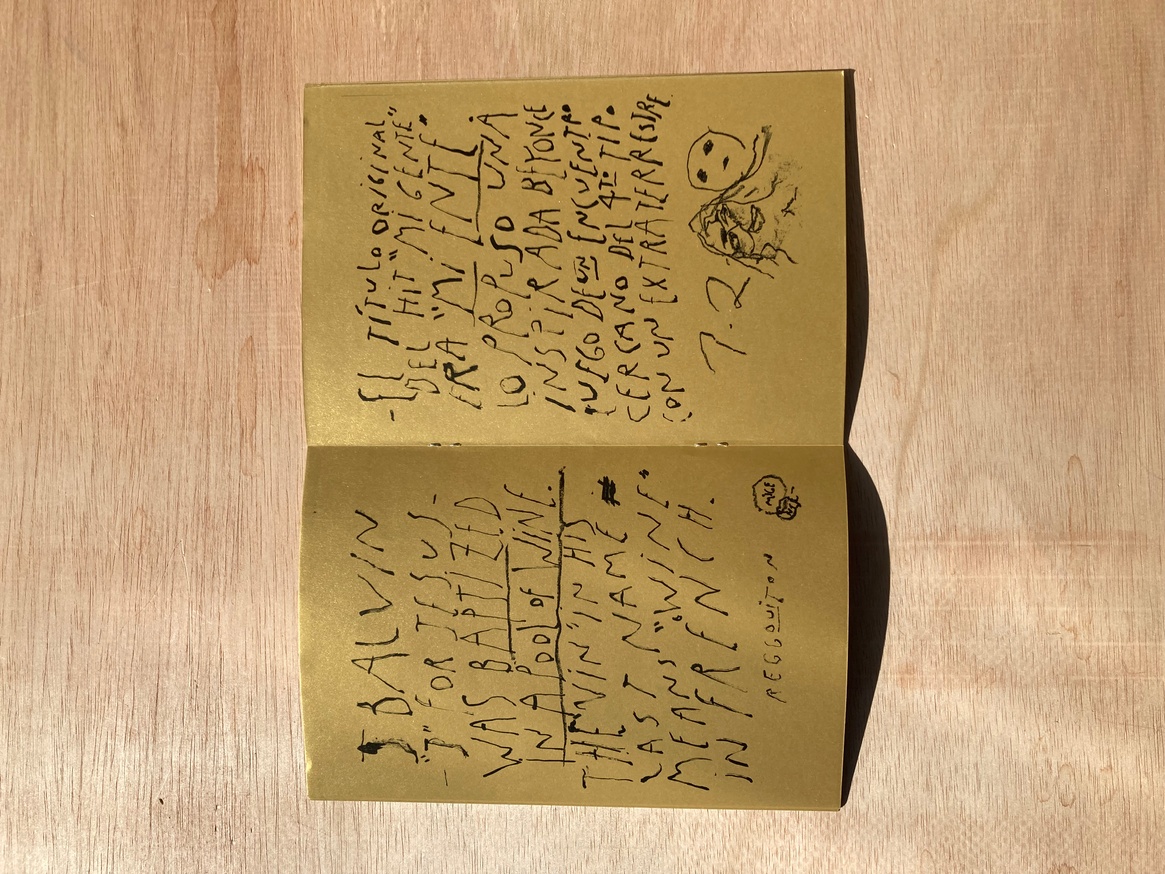 J BALVIN
- "J" FOR JESUS -
WAS BAPTIZED
IN A POOL of WINE.
THE "VIN" IN HIS
LAST NAME
MEANS "WINE"
IN FRENCH.
REGGOUITON
- El TÍTULO ORIGINAL
DEL HIT "MI GENTE"
ERA "MI ENTE".
LO PROPUSO UNA
INSPIRADA BEYONCE
LUEGO DE UN ENCUENTRO
CERCANO DEL 4TO TIPO
CON UN EXTRATERRESTRE
7.2